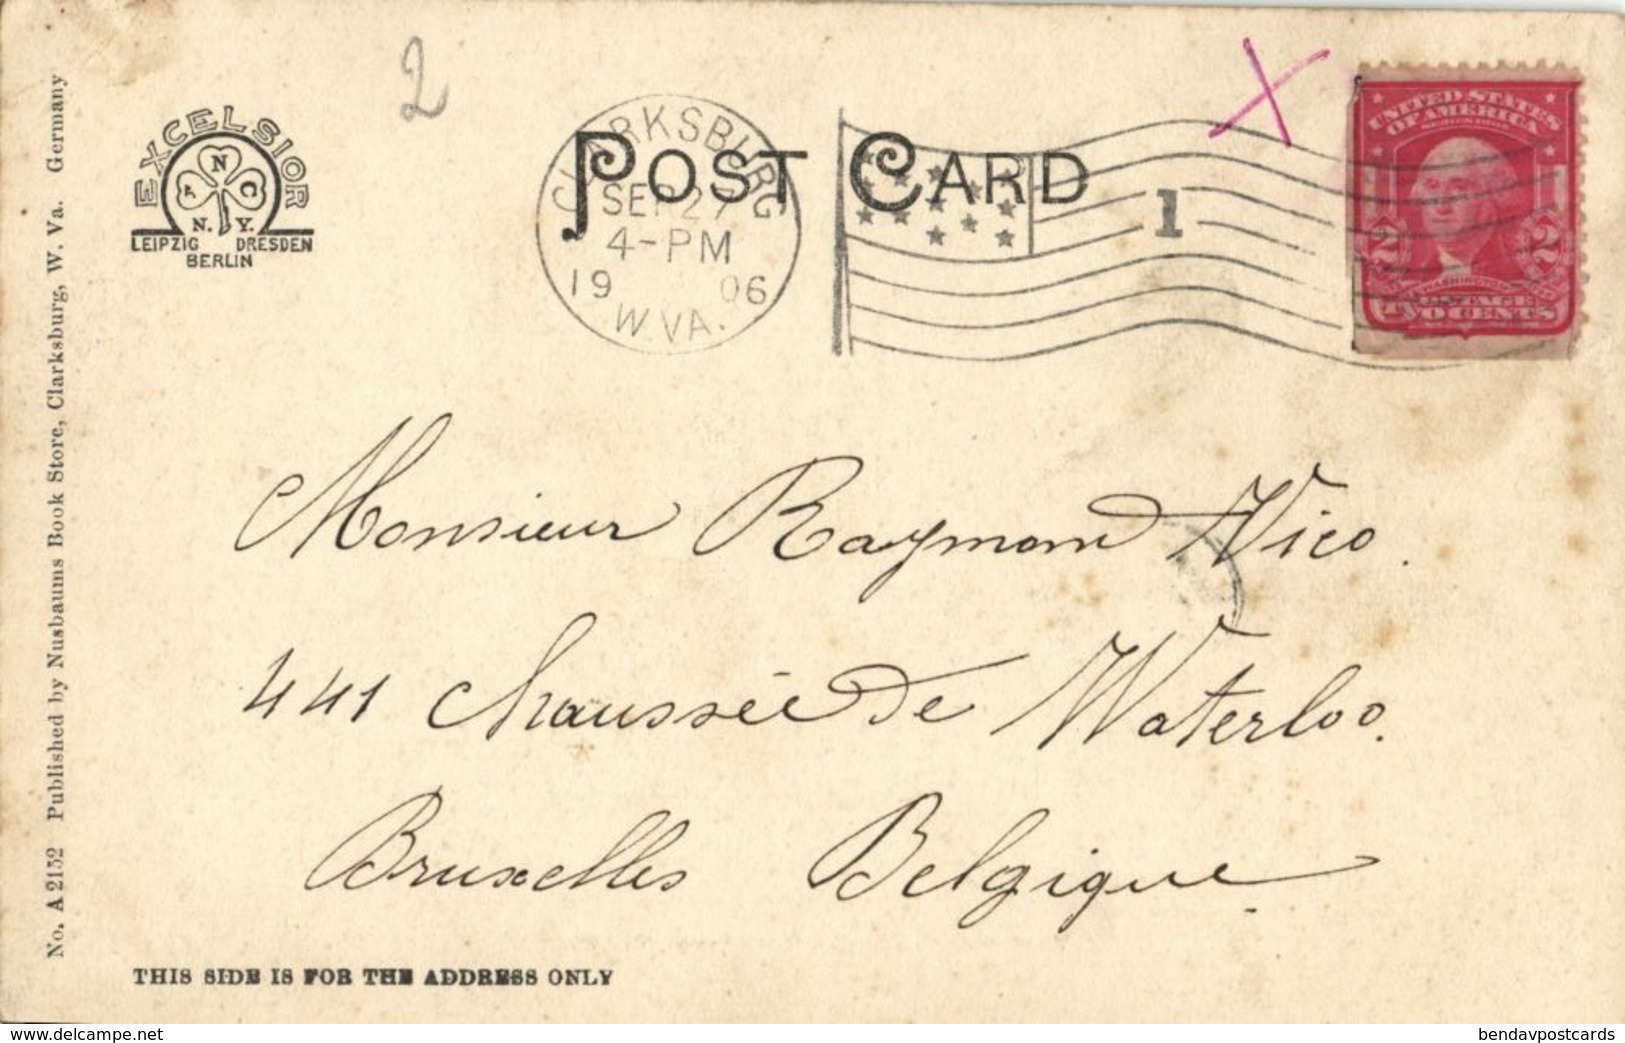 2
EXCELSIOR
A N C
N. Y.
LEIPZIG DRESDEN
BERLIN
CLARKSBURG
SEP 27
4-PM
19 06
W.VA.
POST CARD
1
UNITED STATES
OF AMERICA
2 2
WASHINGTON
TWO CENTS
No. A 2152 Published by Nusbaums Book Store, Clarksburg, W. Va. Germany
Monsieur Raymond Vico.
441 Chaussée de Waterloo.
Bruxelles Belgique
THIS SIDE IS FOR THE ADDRESS ONLY
www.delcampe.net
bendavpostcards